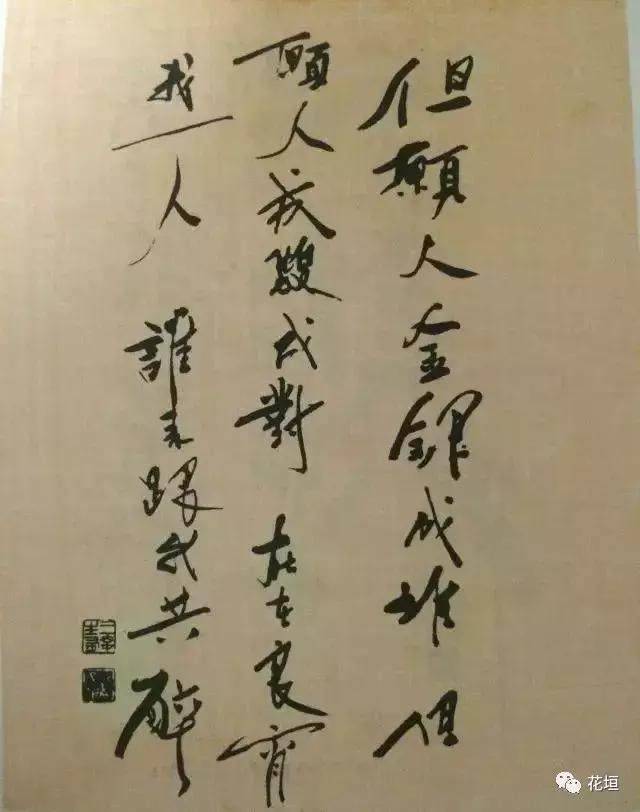 但願人金銀成堆 但
願人成雙成對 在良宵
我一人 誰來跟我共醉
花垣